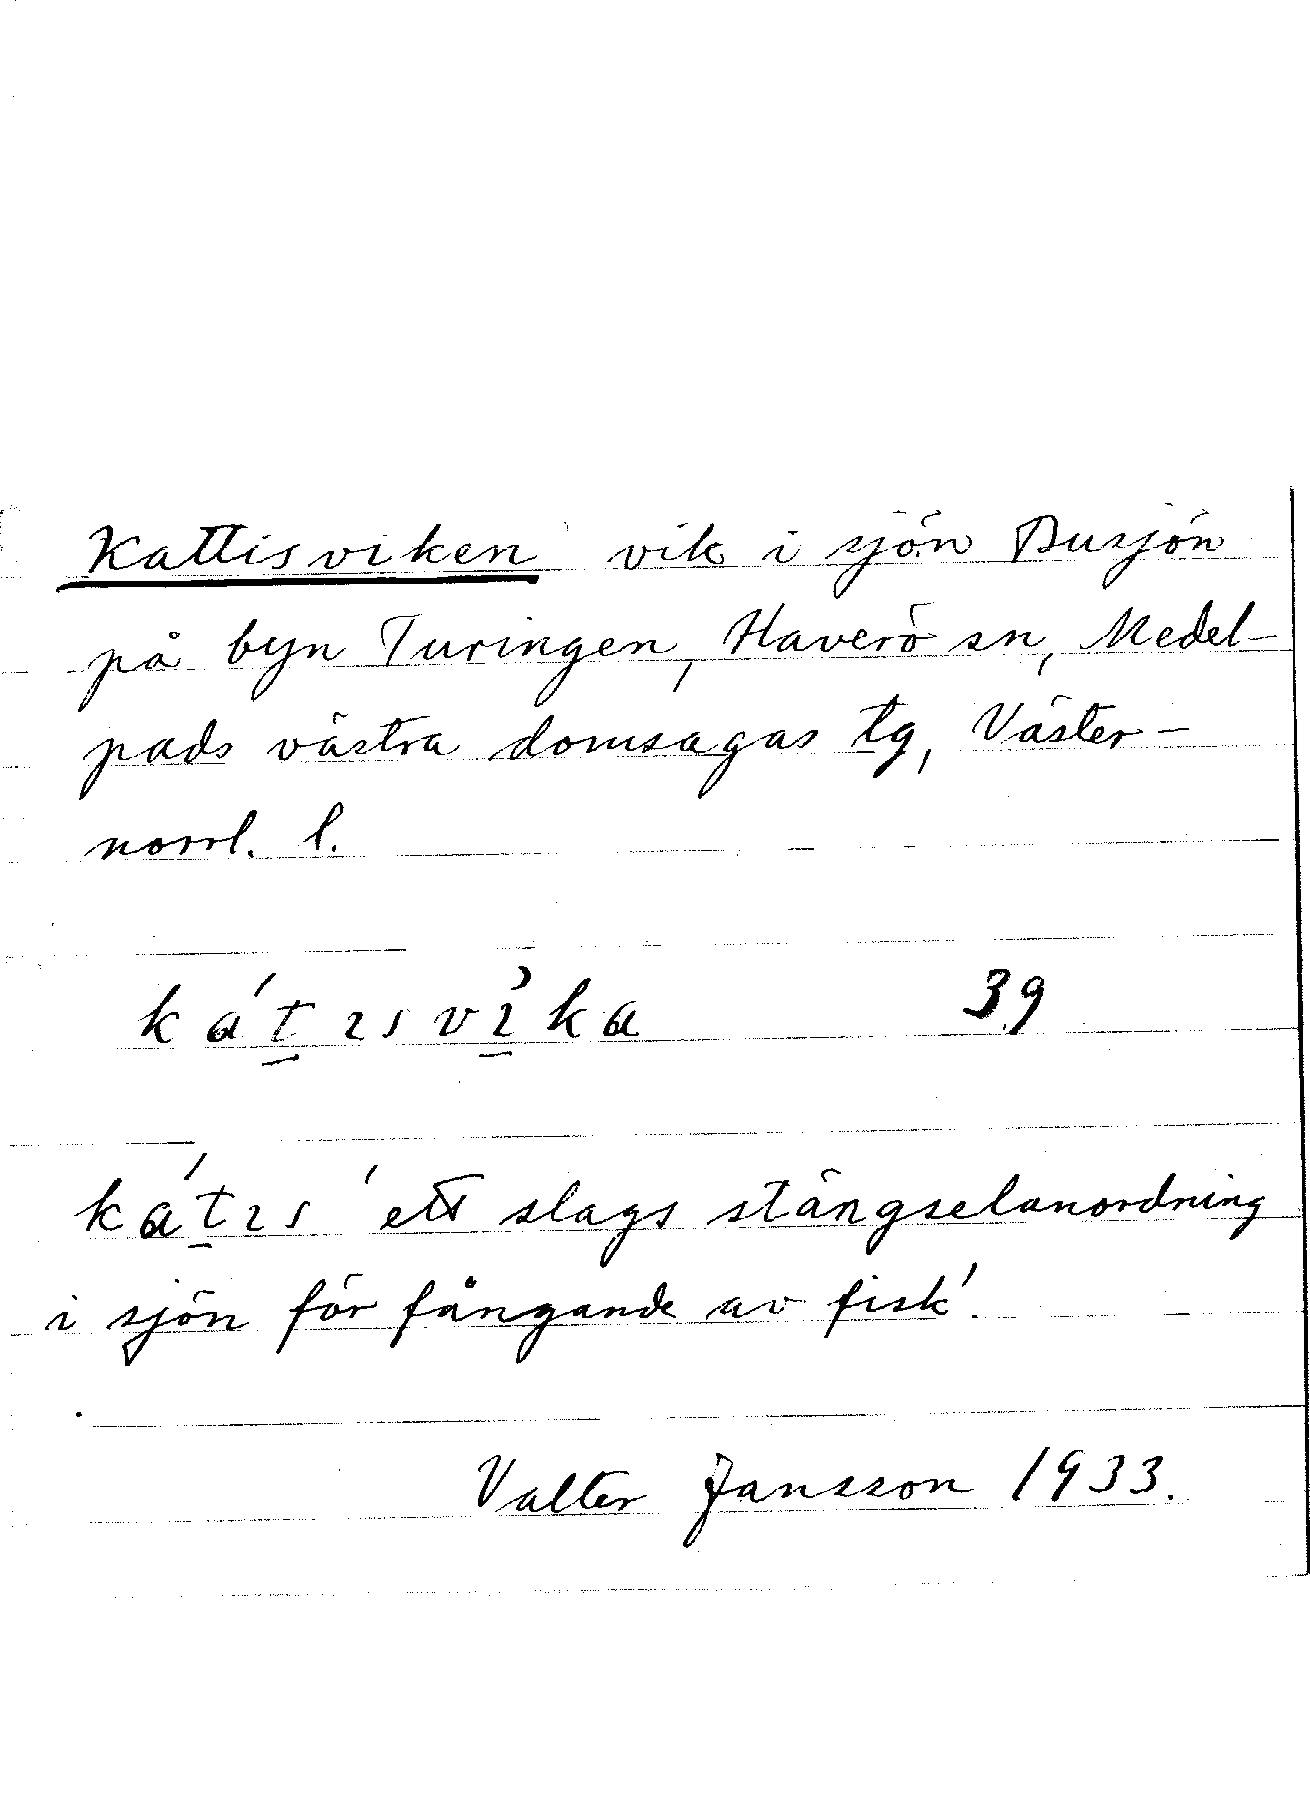 Kattisviken vik i sjön Busjön
på byn Turingen, Haverö sn, Medel-
pads västra domsagas tg, Väster-
norrl. l.
ká̱tısvı̱̀ka 39
ká̱tıs 'ett slags stängselanordning
i sjön för fångande av fisk'.
Valter Jansson 1933.